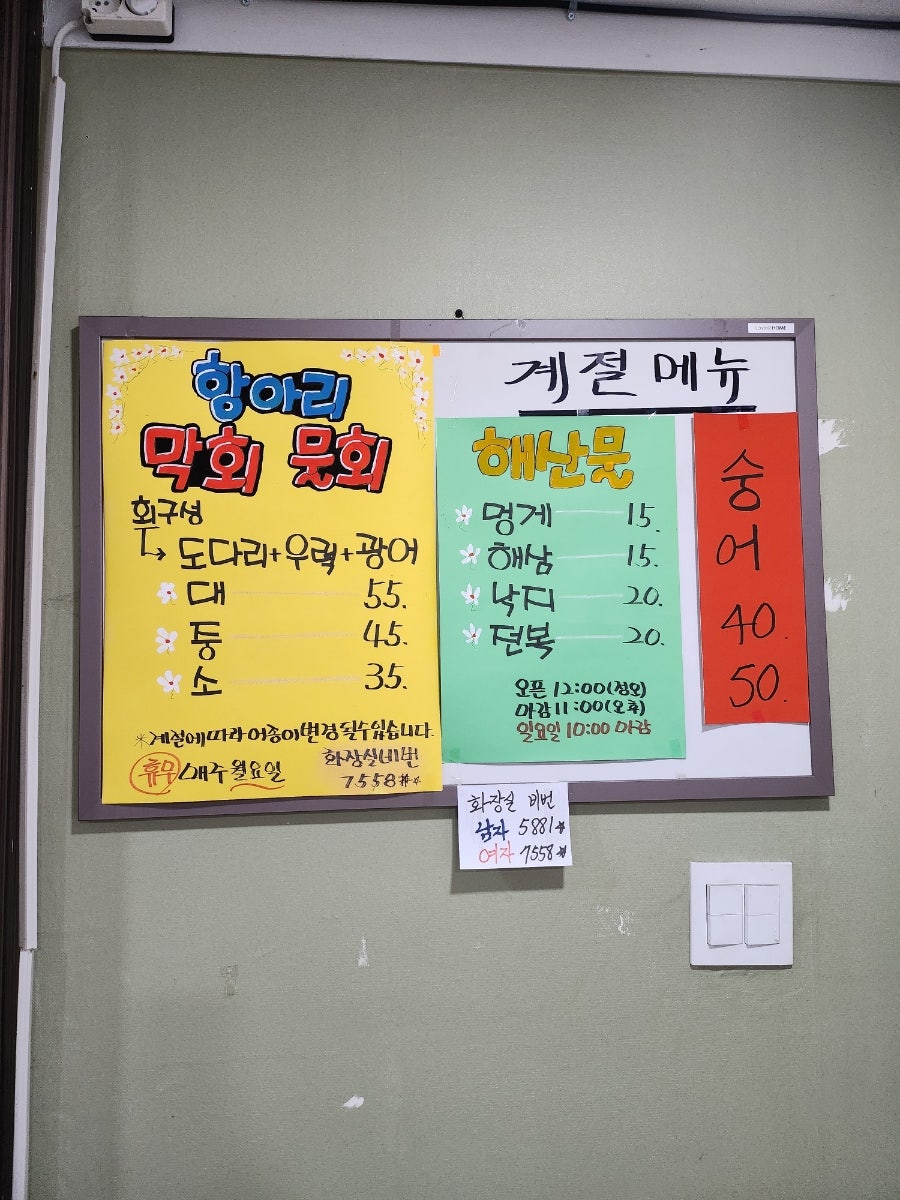 항아리
막회 뭇회
회구성
↳ 도다리+우럭+광어
대 55.
듕 45.
소 35.
*계절에따라 어종이변경될수있습니다.
휴무 매주 월요일
화장실비번
7558#*
계절 메뉴
해산물
멍게 15.
해삼 15.
낙지 20.
전복 20.
오픈 12:00(정오)
마감 11:00(오후)
일요일 10:00 마감
숭
어
40.
50.
화장실 비번
남자 5881*
여자 7558*